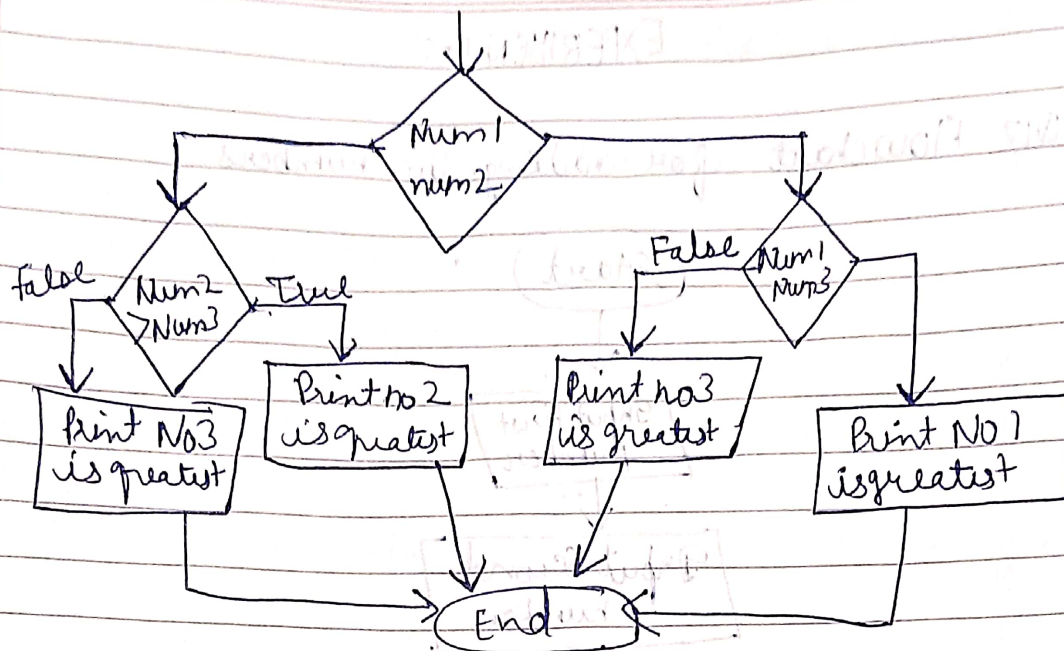 Num1
num2
False
Num2
>Num3
True
False
Num1
Num3
Print No3
is greatest
Print no 2
is greatest
Print no3
is greatest
Print NO 1
is greatest
End